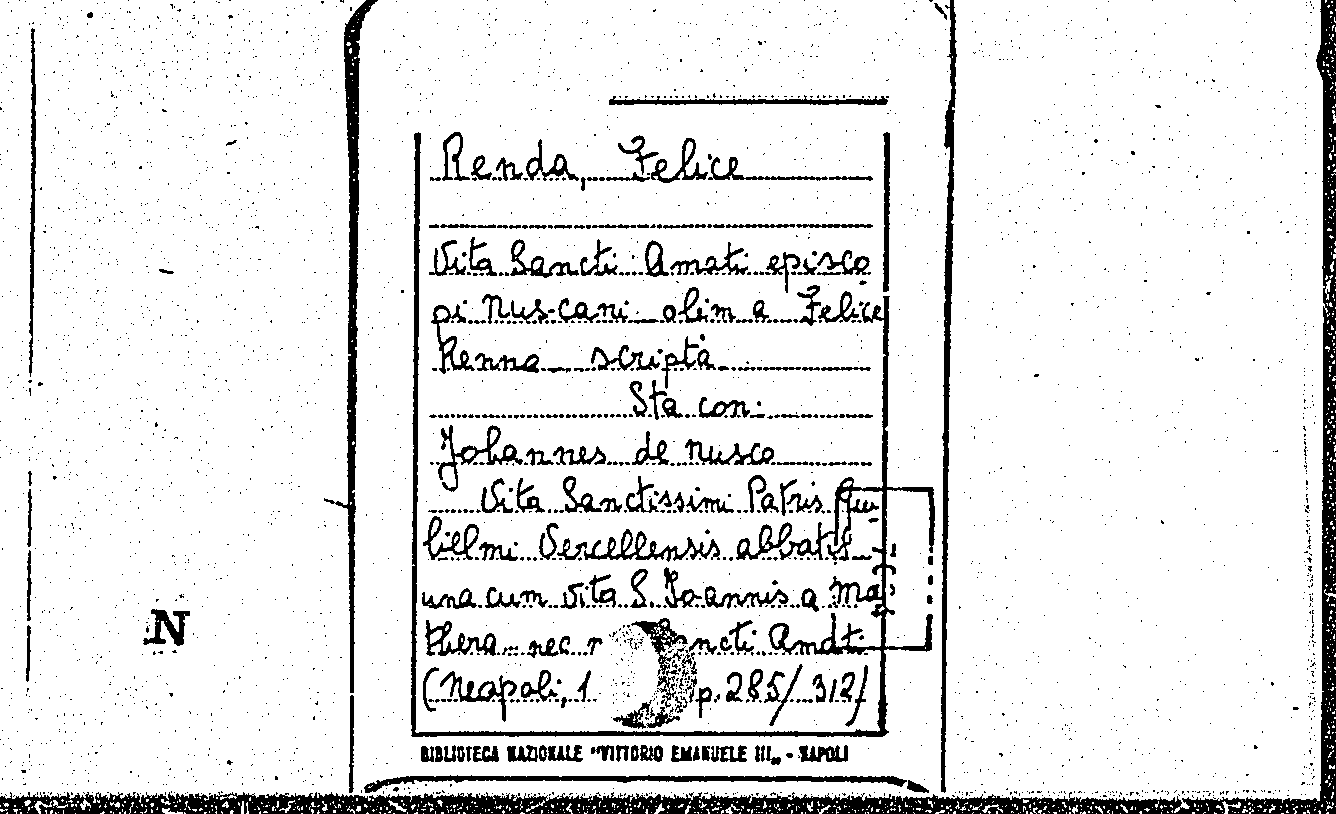 Renda, Felice
Vita Sancti Amati episco
pi Nuscani olim a Felice
Renna scripta
Sta con:
Johannes de Nusco
Vita Sanctissimi Patris Gu
lielmi Vercellensis abbatis
una cum vita S. Joannis a Ma
thera nec Sancti Amati
(Neapoli, 1 p. 285/312)
BIBLIOTECA NAZIONALE "VITTORIO EMANUELE III„ - NAPOLI
N